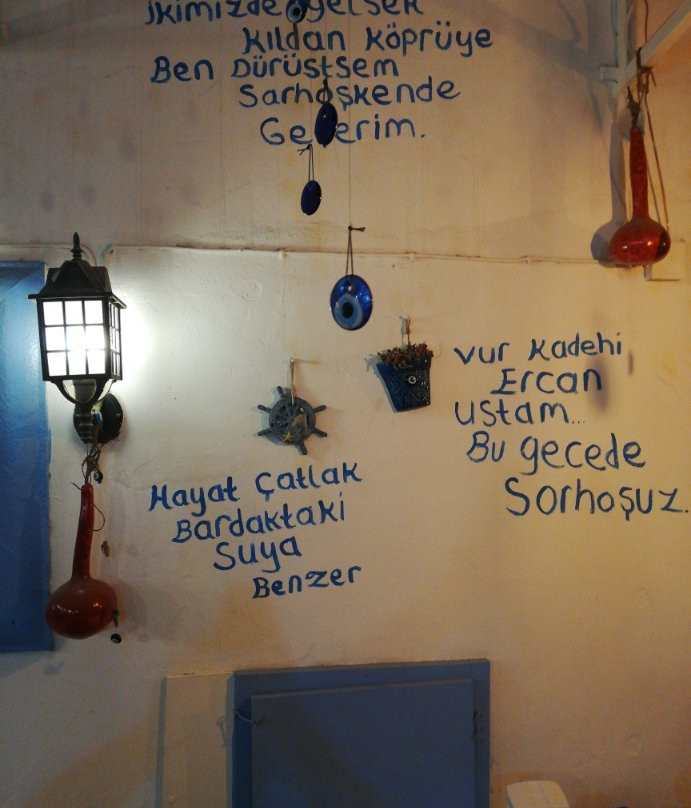 İkimizde gelsek
Kıldan Köprüye
Ben Dürüstsem
Sarhoşkende
Ge erim.
Vur Kadehi
Ercan
Ustam...
Bu gecede
Sorhoşuz.
Hayat Çatlak
Bardaktaki
Suya
Benzer